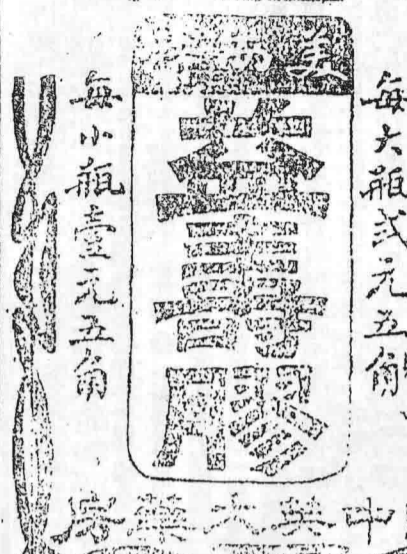 每大瓶弍元五角
美
壽膠
每小瓶壹元五角
中英大藥房